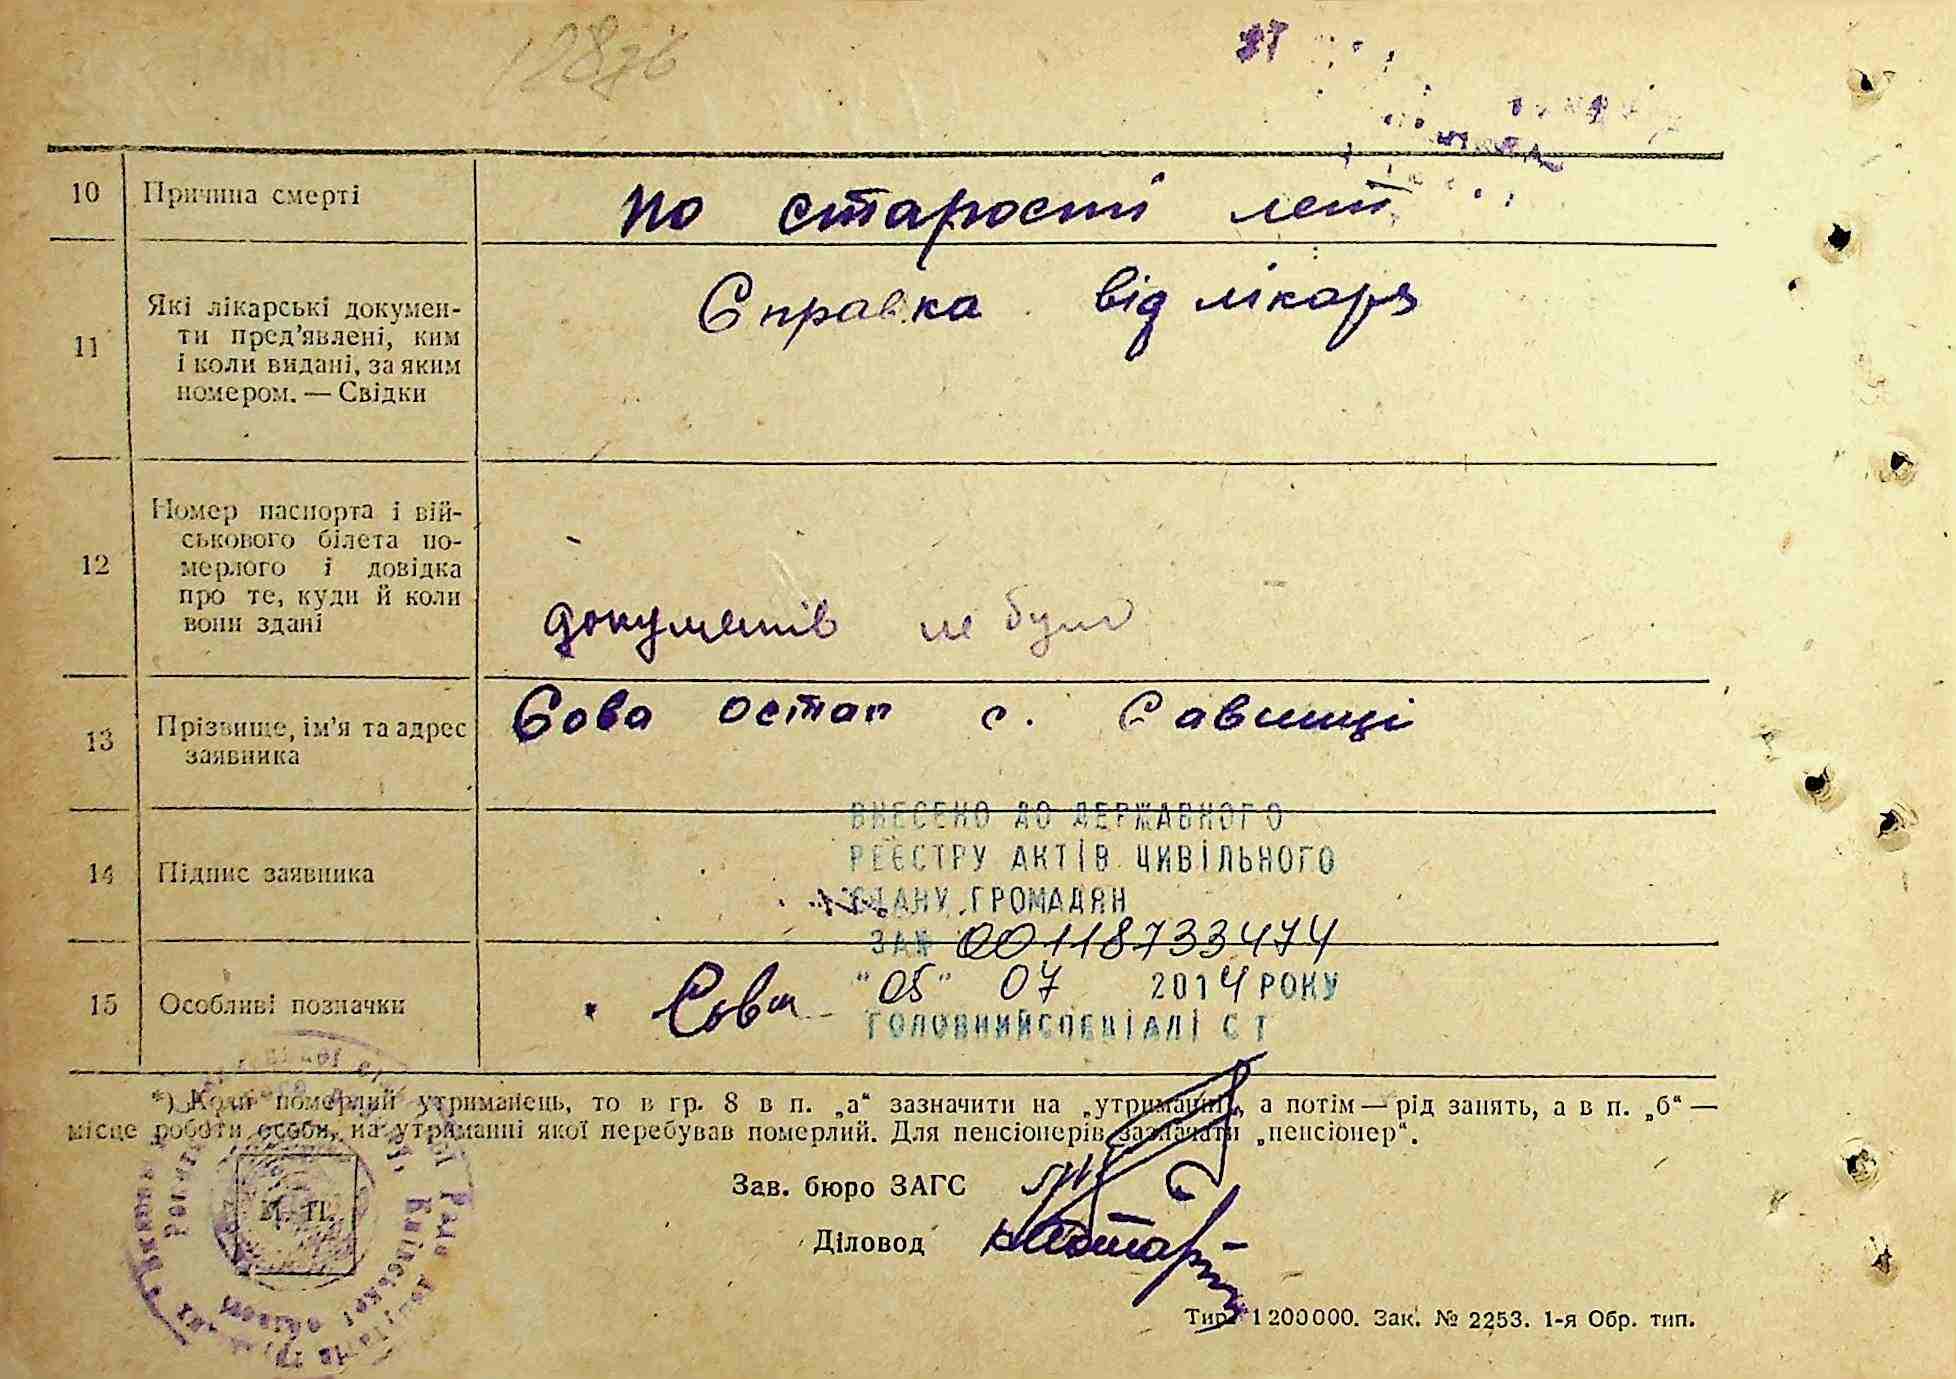 10 Причина смерті по старості лет
11 Які лікарські докумен-
ти пред'явлені, ким
і коли видані, за яким
номером. — Свідки
Справка від лікаря
12 Номер паспорта і вій-
ськового білета по-
мерлого і довідка
про те, куди й коли
вони здані
документів не було
13 Прізвище, ім'я та адрес
заявника
Сова Остап с. Савинці
ВНЕСЕНО ДО ДЕРЖАВНОГО
РЕЄСТРУ АКТІВ ЦИВІЛЬНОГО
СТАНУ ГРОМАДЯН
ЗА№ 00118733474
"05" 07 2014 РОКУ
ГОЛОВНИЙ СПЕЦІАЛІСТ
14 Підпис заявника
15 Особливі позначки
Сова
*) Коли померлий утриманець, то в гр. 8 в п. „а“ зазначити на „утриманні“, а потім — рід занять, а в п. „б“ —
місце роботи особи, на утриманні якої перебував померлий. Для пенсіонерів зазначати „пенсіонер“.
Зав. бюро ЗАГС
М. П.
Діловод
Тир. 1200000. Зак. № 2253. 1-я Обр. тип.